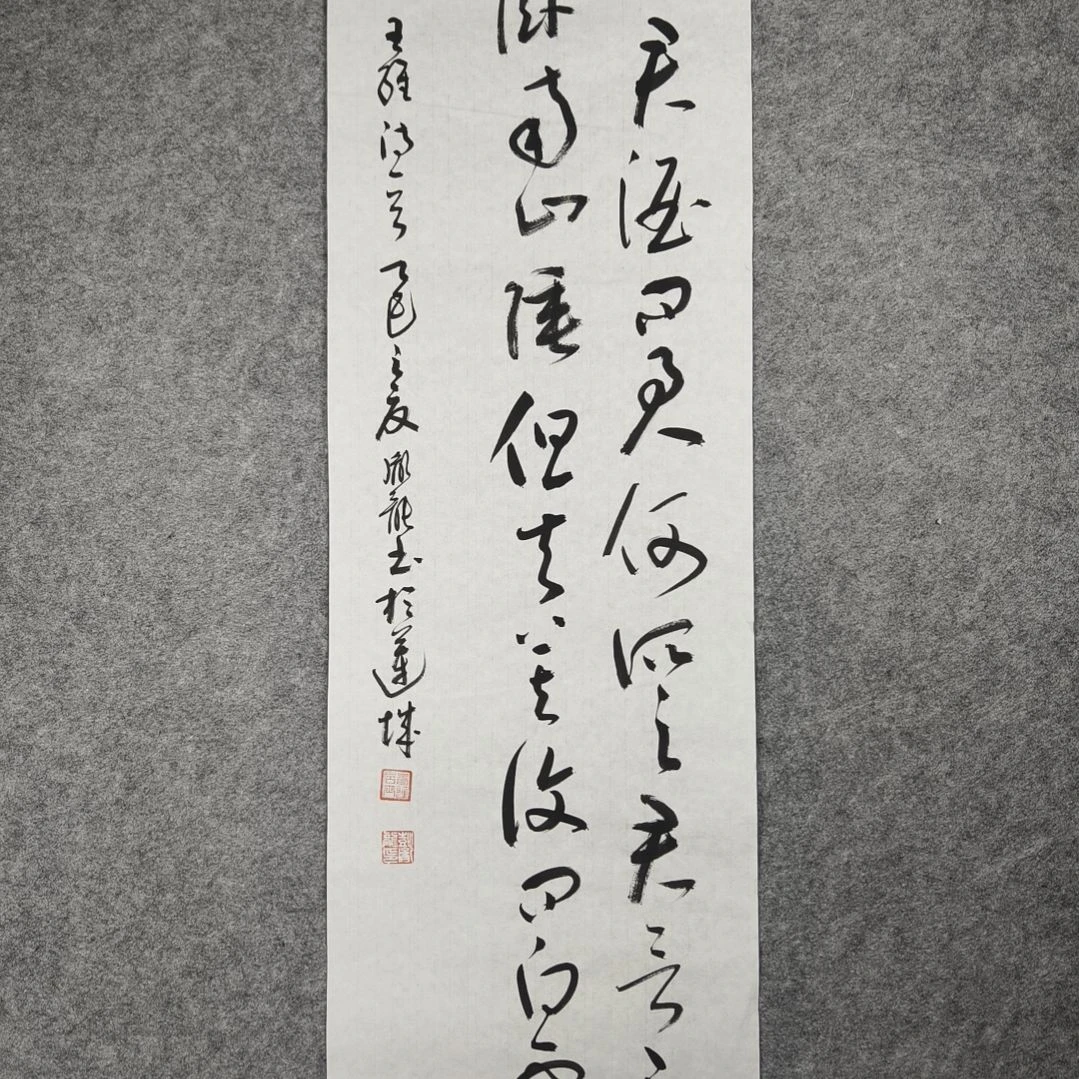 君酒問君何所之君言不
臥南山陲但去莫復問白雲
王維詩一首 乙巳之夏 龍書於蓮城